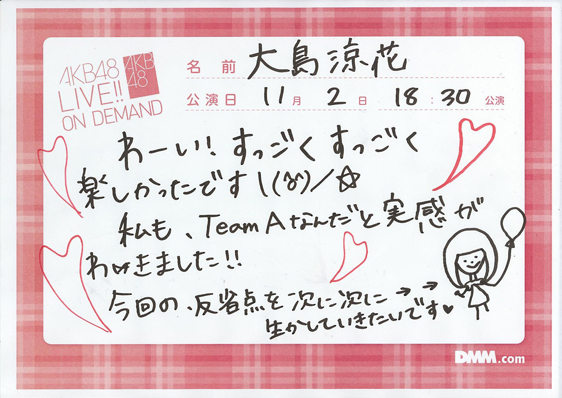 AKB48
LIVE!!
ON DEMAND
AKB
48
名前 大島涼花
公演日 11月2日 18:30公演
わーい！すっごくすっごく
楽しかったです\(^o^)/☆
私も、Team Aなんだと実感が
わきました!!
今回の、反省点を次に次に→→
生かしていきたいです♥
DMM.com